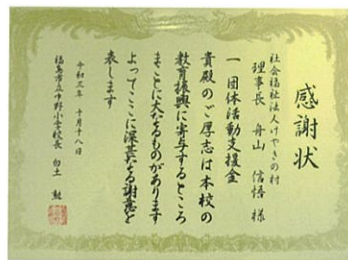 感謝状
社会福祉法人けやきの村
理事長 舟山 信悟 様
一 団体活動支援金
貴殿のご厚志は本校の
教育振興に寄与するところ
まことに大なるものがあります
よってここに深甚なる謝意を
表します
令和三年 十月十八日
福島市立中野小学校長 白土 勲